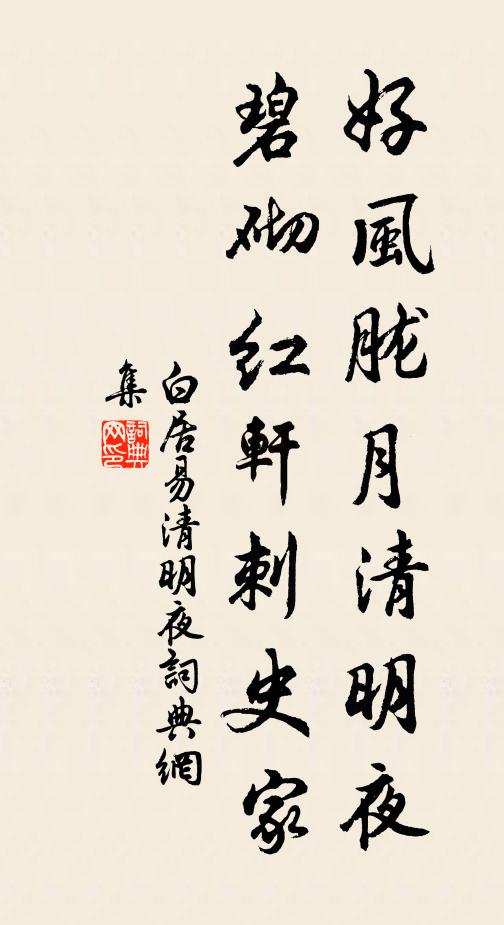 好風胧月清明夜
碧砌红軒刺史家
白居易清明夜詞典網
集
詞典
网印